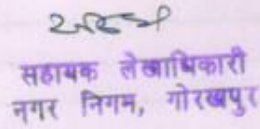 सहायक लेखाधिकारी
नगर निगम, गोरखपुर